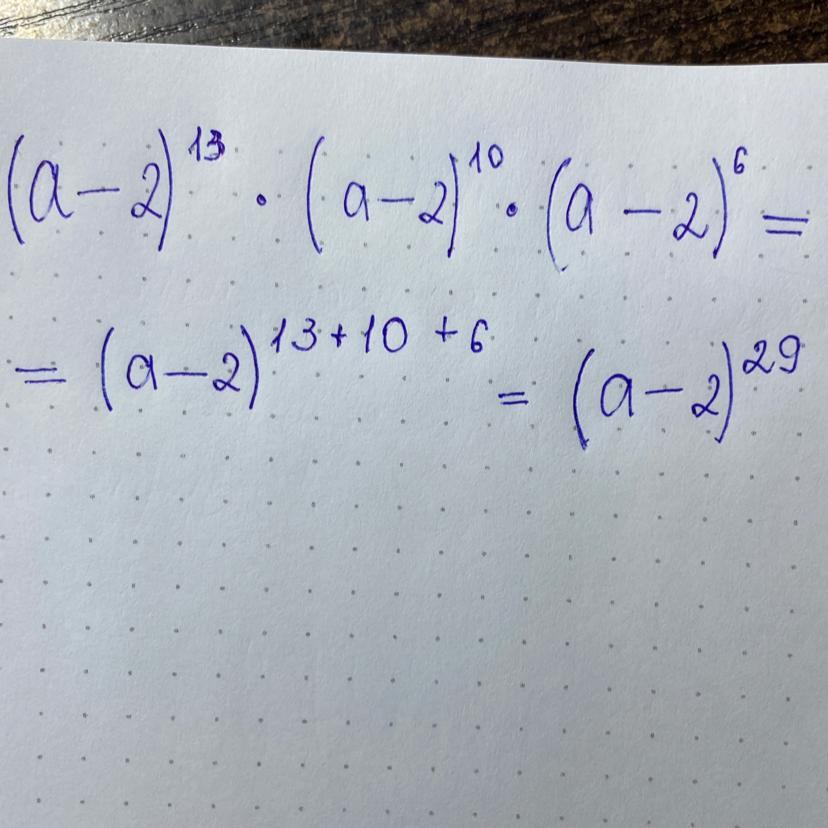 (a-2)^13 · (a-2)^10 · (a-2)^6 =
= (a-2)^13+10+6 = (a-2)^29